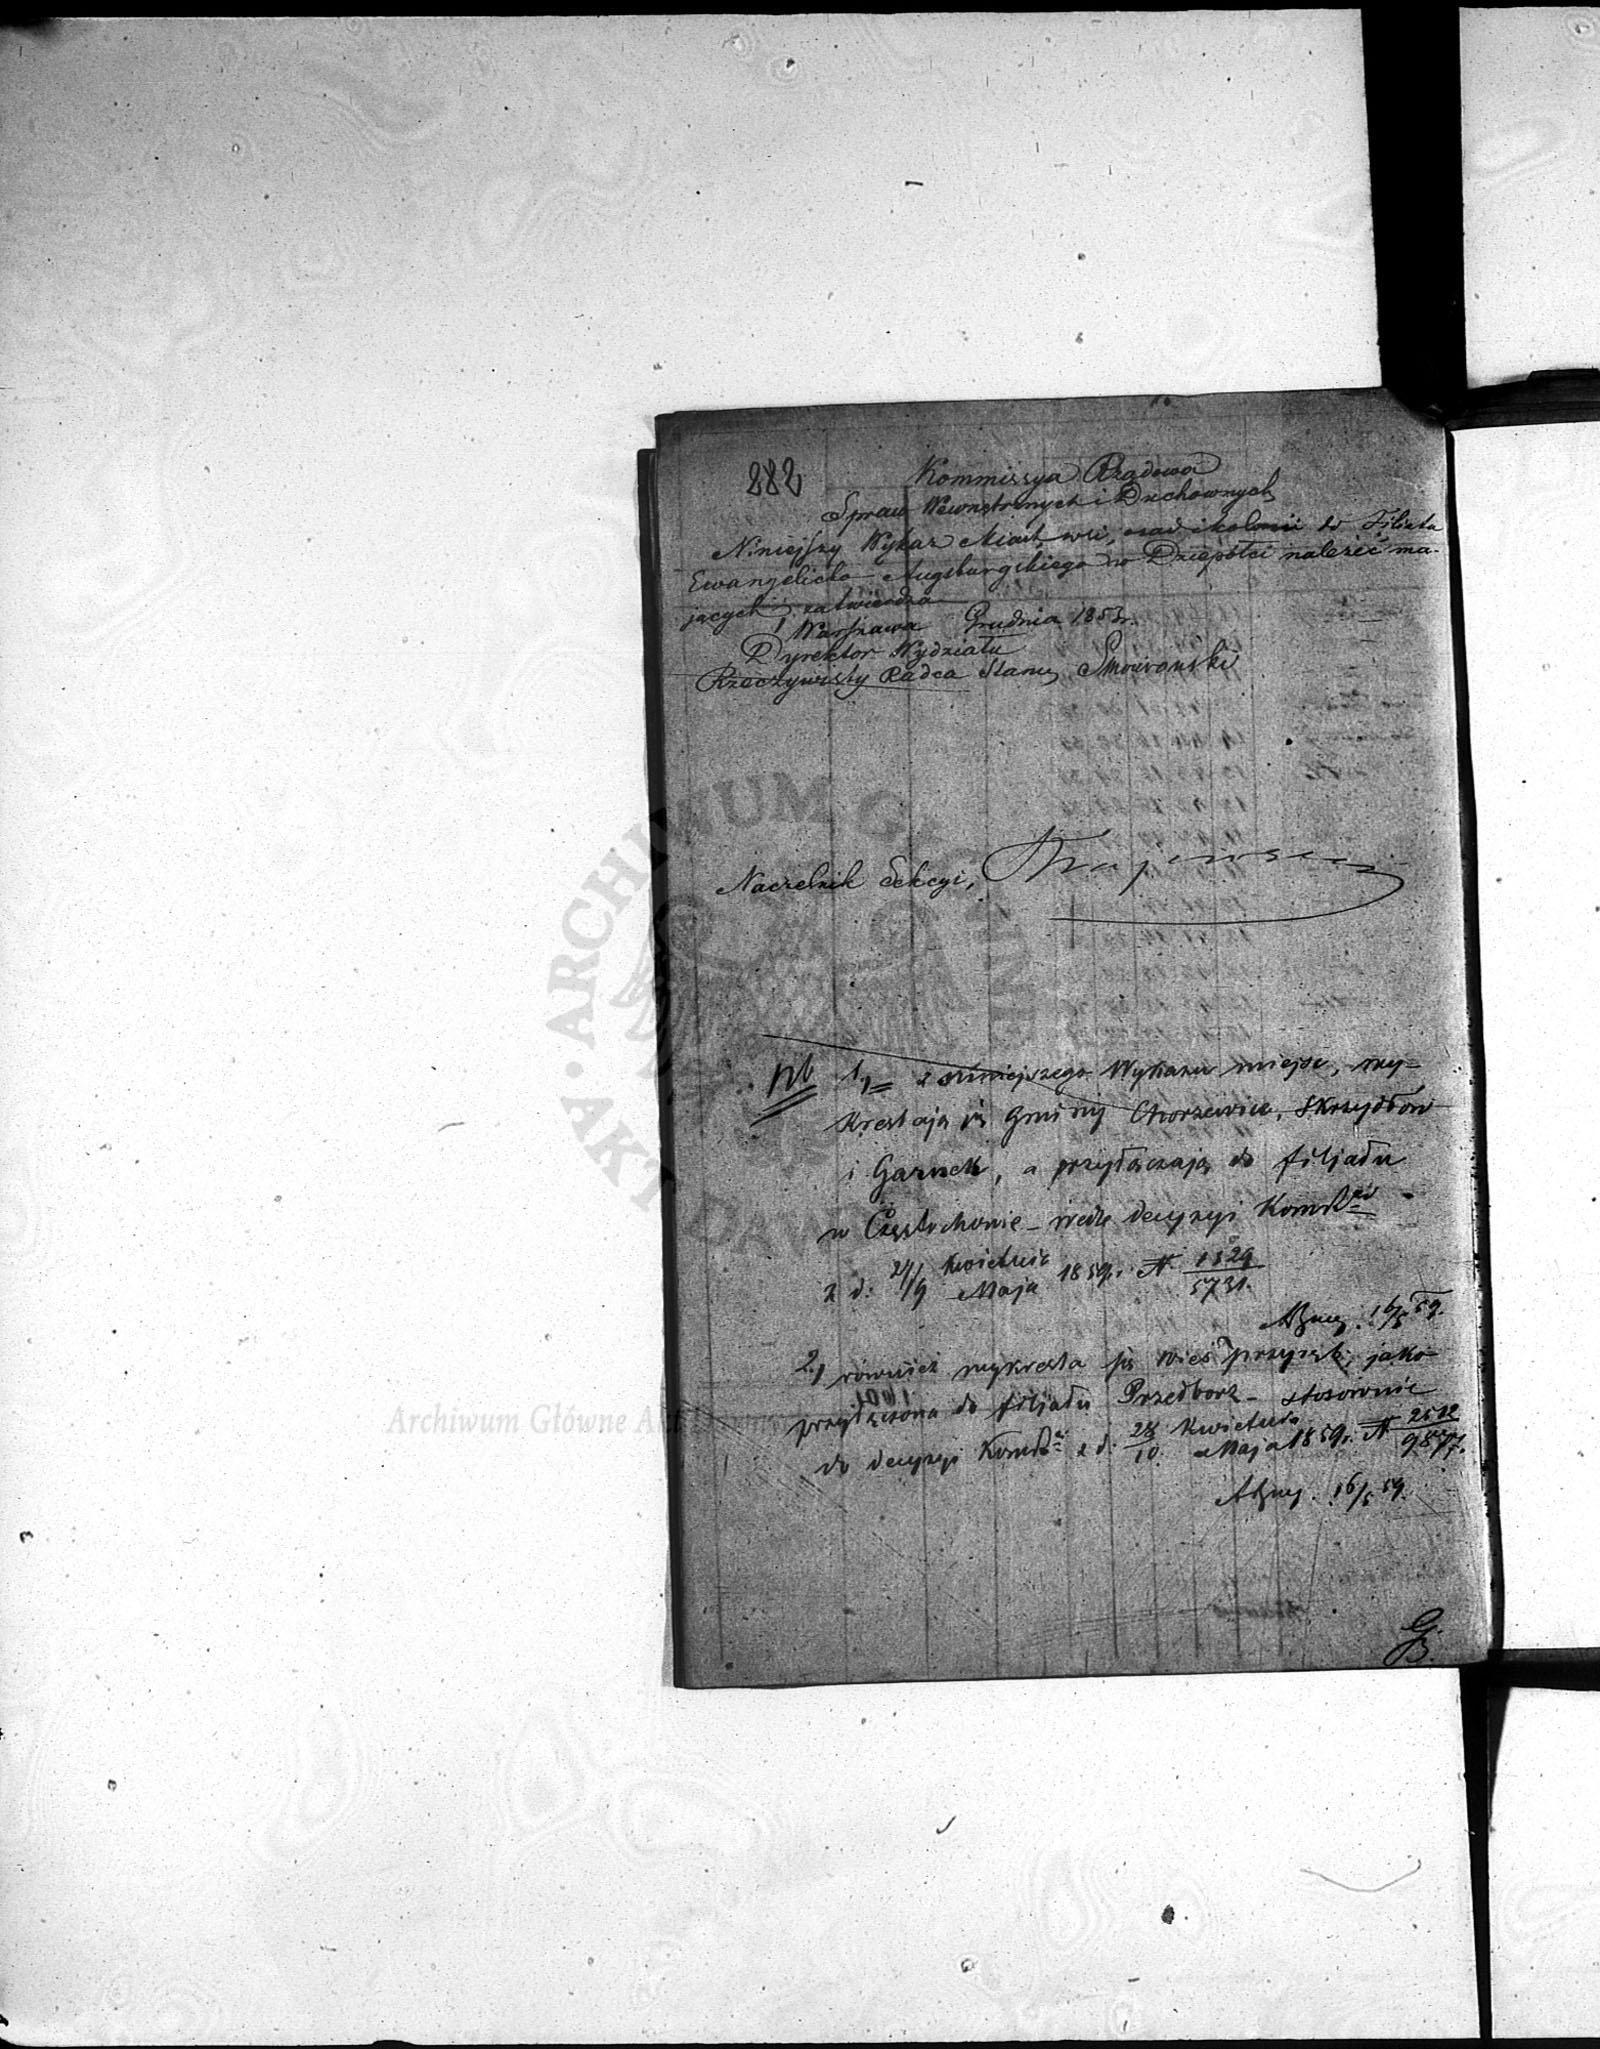 282
Kommissya Rządowa
Spraw Wewnętrznych i Duchownych
Niniejszy Wykaz Miast, wsi, osad i kolonii do Filiału
Ewangelicko-Augsburgskiego w Dziepółci należéć ma-
jących, zatwierdza
Warszawa Grudnia 1853 r.
Dyrektor Wydziału
Rzeczywisty Radca Stanu Smowroński
Naczelnik Sekcyi,
Nb 1, z niniejszego Wykazu miejsc, wy-
kreślają się Gminy Chorzewice, Skrzydłów
i Garnek, a przyłączają do filjału
w Częstochowie - wedle decyzyi
z d: 27/9 Kwietnia Maja 1859 r. N 1529/5731.
16/5 59.
2, również wykreśla się wieś Przyrąb, jako
przyłączona do filjału Przedborz - stosownie
do decyzyi z d. 28/10 Kwietnia Maja 1859 r. N 2512/9877.
16/5 59.
ARCHIWUM GŁÓWNE AKT DAWNYCH
Archiwum Główne Akt Dawnych